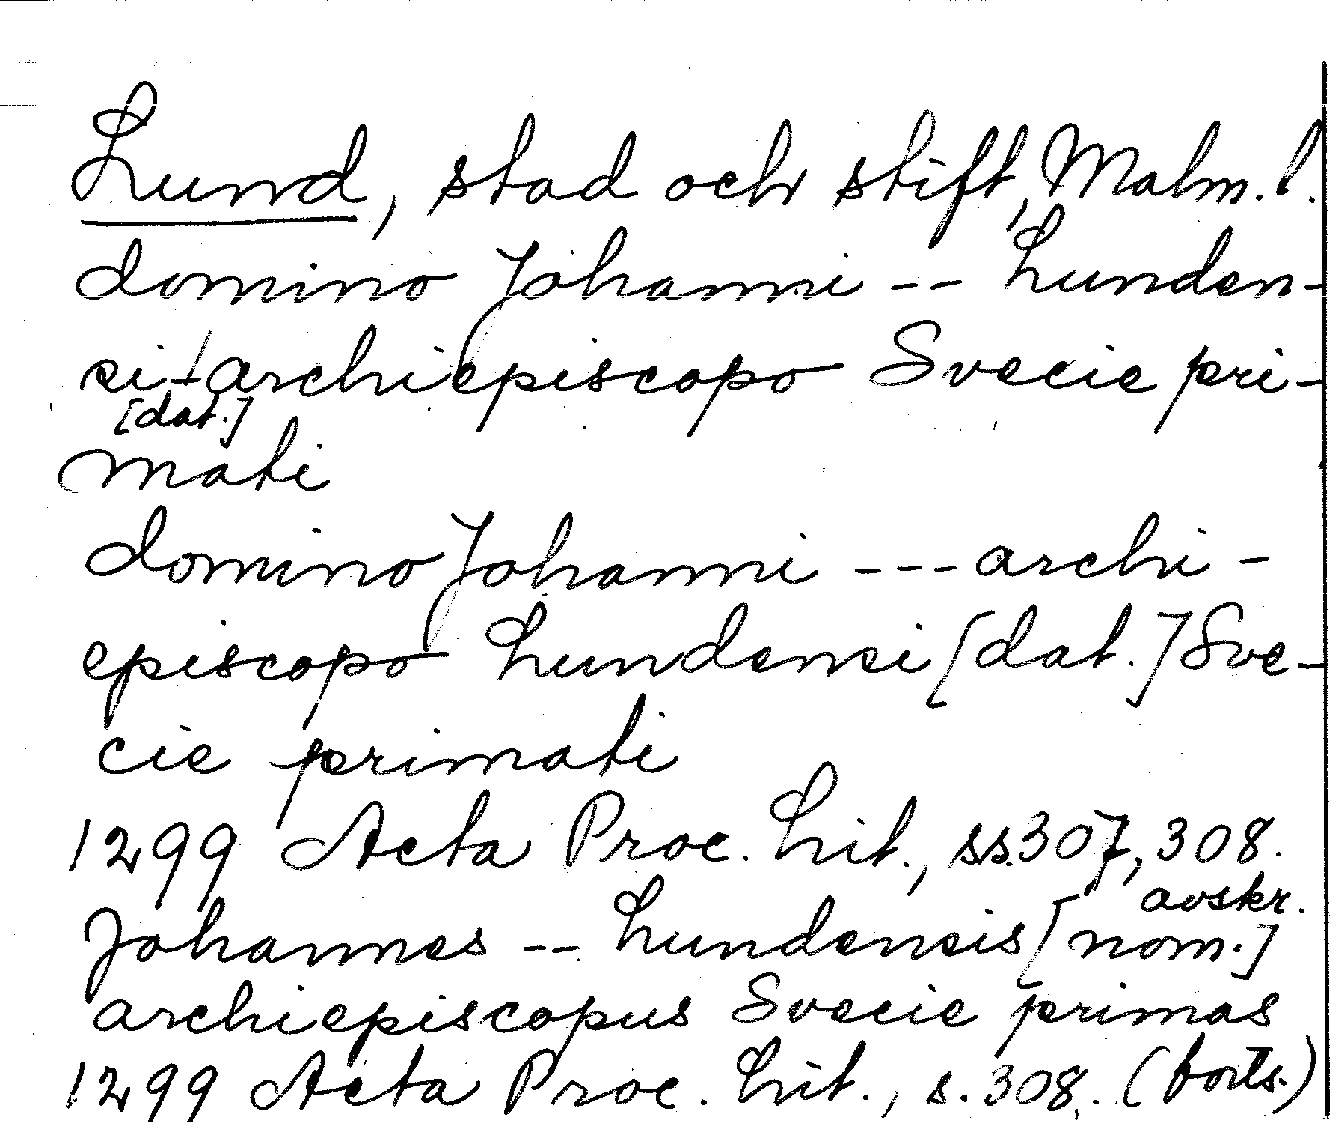 Lund, stad och stift, Malm. l.
domino Johanni -- Lunden-
si archiepiscopo Svecie pri-
[dat.]
mati
domino Johanni --- archi-
episcopo Lundensi [dat.] Sve-
cie primati
1299 Acta Proc. Lit., ss. 307, 308.
avskr.
Johannes -- Lundensis [nom.]
archiepiscopus Svecie primas
1299 Acta Proc. Lit., s. 308. (forts.)